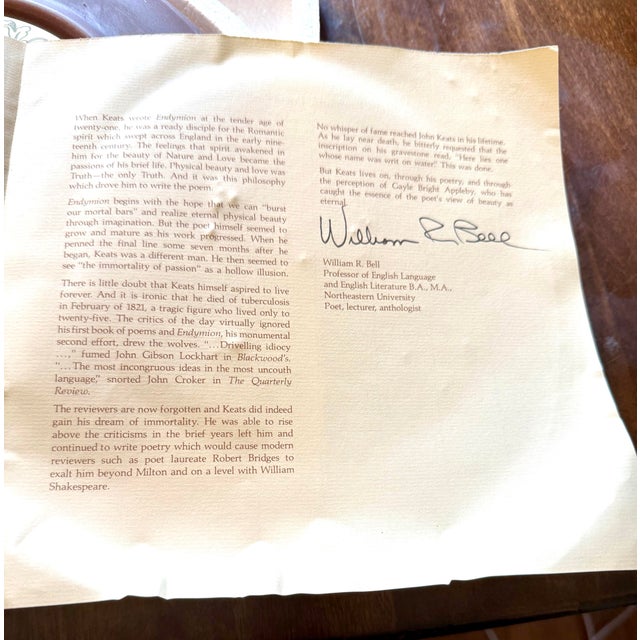 When Keats wrote Endymion at the tender age of
twenty-one, he was a ready disciple for the Romantic
spirit which swept across England in the early nine-
teenth century. The feelings that spirit awakened in
him for the beauty of Nature and Love became the
passions of his brief life. Physical beauty and love was
Truth—the only Truth. And it was this philosophy
which drove him to write the poem.
Endymion begins with the hope that we can "burst
our mortal bars" and realize eternal physical beauty
through imagination. But the poet himself seemed to
grow and mature as his work progressed. When he
penned the final line some seven months after he
began, Keats was a different man. He then seemed to
see "the immortality of passion" as a hollow illusion.
There is little doubt that Keats himself aspired to live
forever. And it is ironic that he died of tuberculosis
in February of 1821, a tragic figure who lived only to
twenty-five. The critics of the day virtually ignored
his first book of poems and Endymion, his monumental
second effort, drew the wolves. "...Drivelling idiocy
...," fumed John Gibson Lockhart in Blackwood's.
"...The most incongruous ideas in the most uncouth
language," snorted John Croker in The Quarterly
Review.
The reviewers are now forgotten and Keats did indeed
gain his dream of immortality. He was able to rise
above the criticisms in the brief years left him and
continued to write poetry which would cause modern
reviewers such as poet laureate Robert Bridges to
exalt him beyond Milton and on a level with William
Shakespeare.
No whisper of fame reached John Keats in his lifetime.
As he lay near death, he bitterly requested that the
inscription on his gravestone read, "Here lies one
whose name was writ on water." This was done.
But Keats lives on, through his poetry, and through
the perception of Gayle Bright Appleby, who has
caught the essence of the poet's view of beauty as
eternal.
William R. Bell
William R. Bell
Professor of English Language
and English Literature B.A., M.A.,
Northeastern University
Poet, lecturer, anthologist